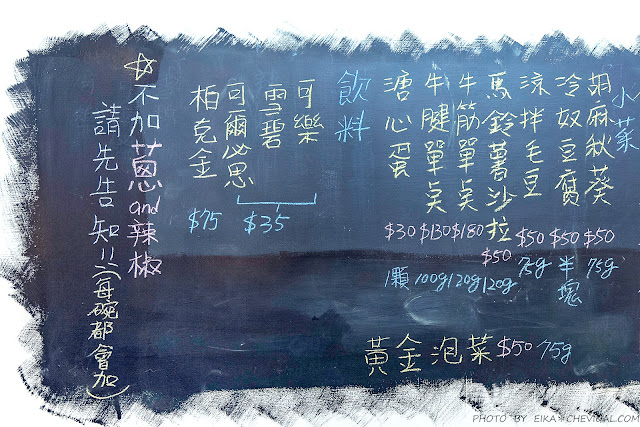 小菜
胡麻秋葵 $50 75g
冷奴豆腐 $50 半塊
涼拌毛豆 $50 75g
馬鈴薯沙拉 $50 120g
牛筋單奌 $180 120g
牛腱單奌 $130 100g
溏心蛋 $30 1顆
黃金泡菜 $50 75g
飲料
可樂
雪碧
可爾必思
$35
柏克金 $75
☆不加蔥and辣椒
請先告知!!(每碗都會加)
PHOTO BY EIKA☆CHEVIGAL.COM